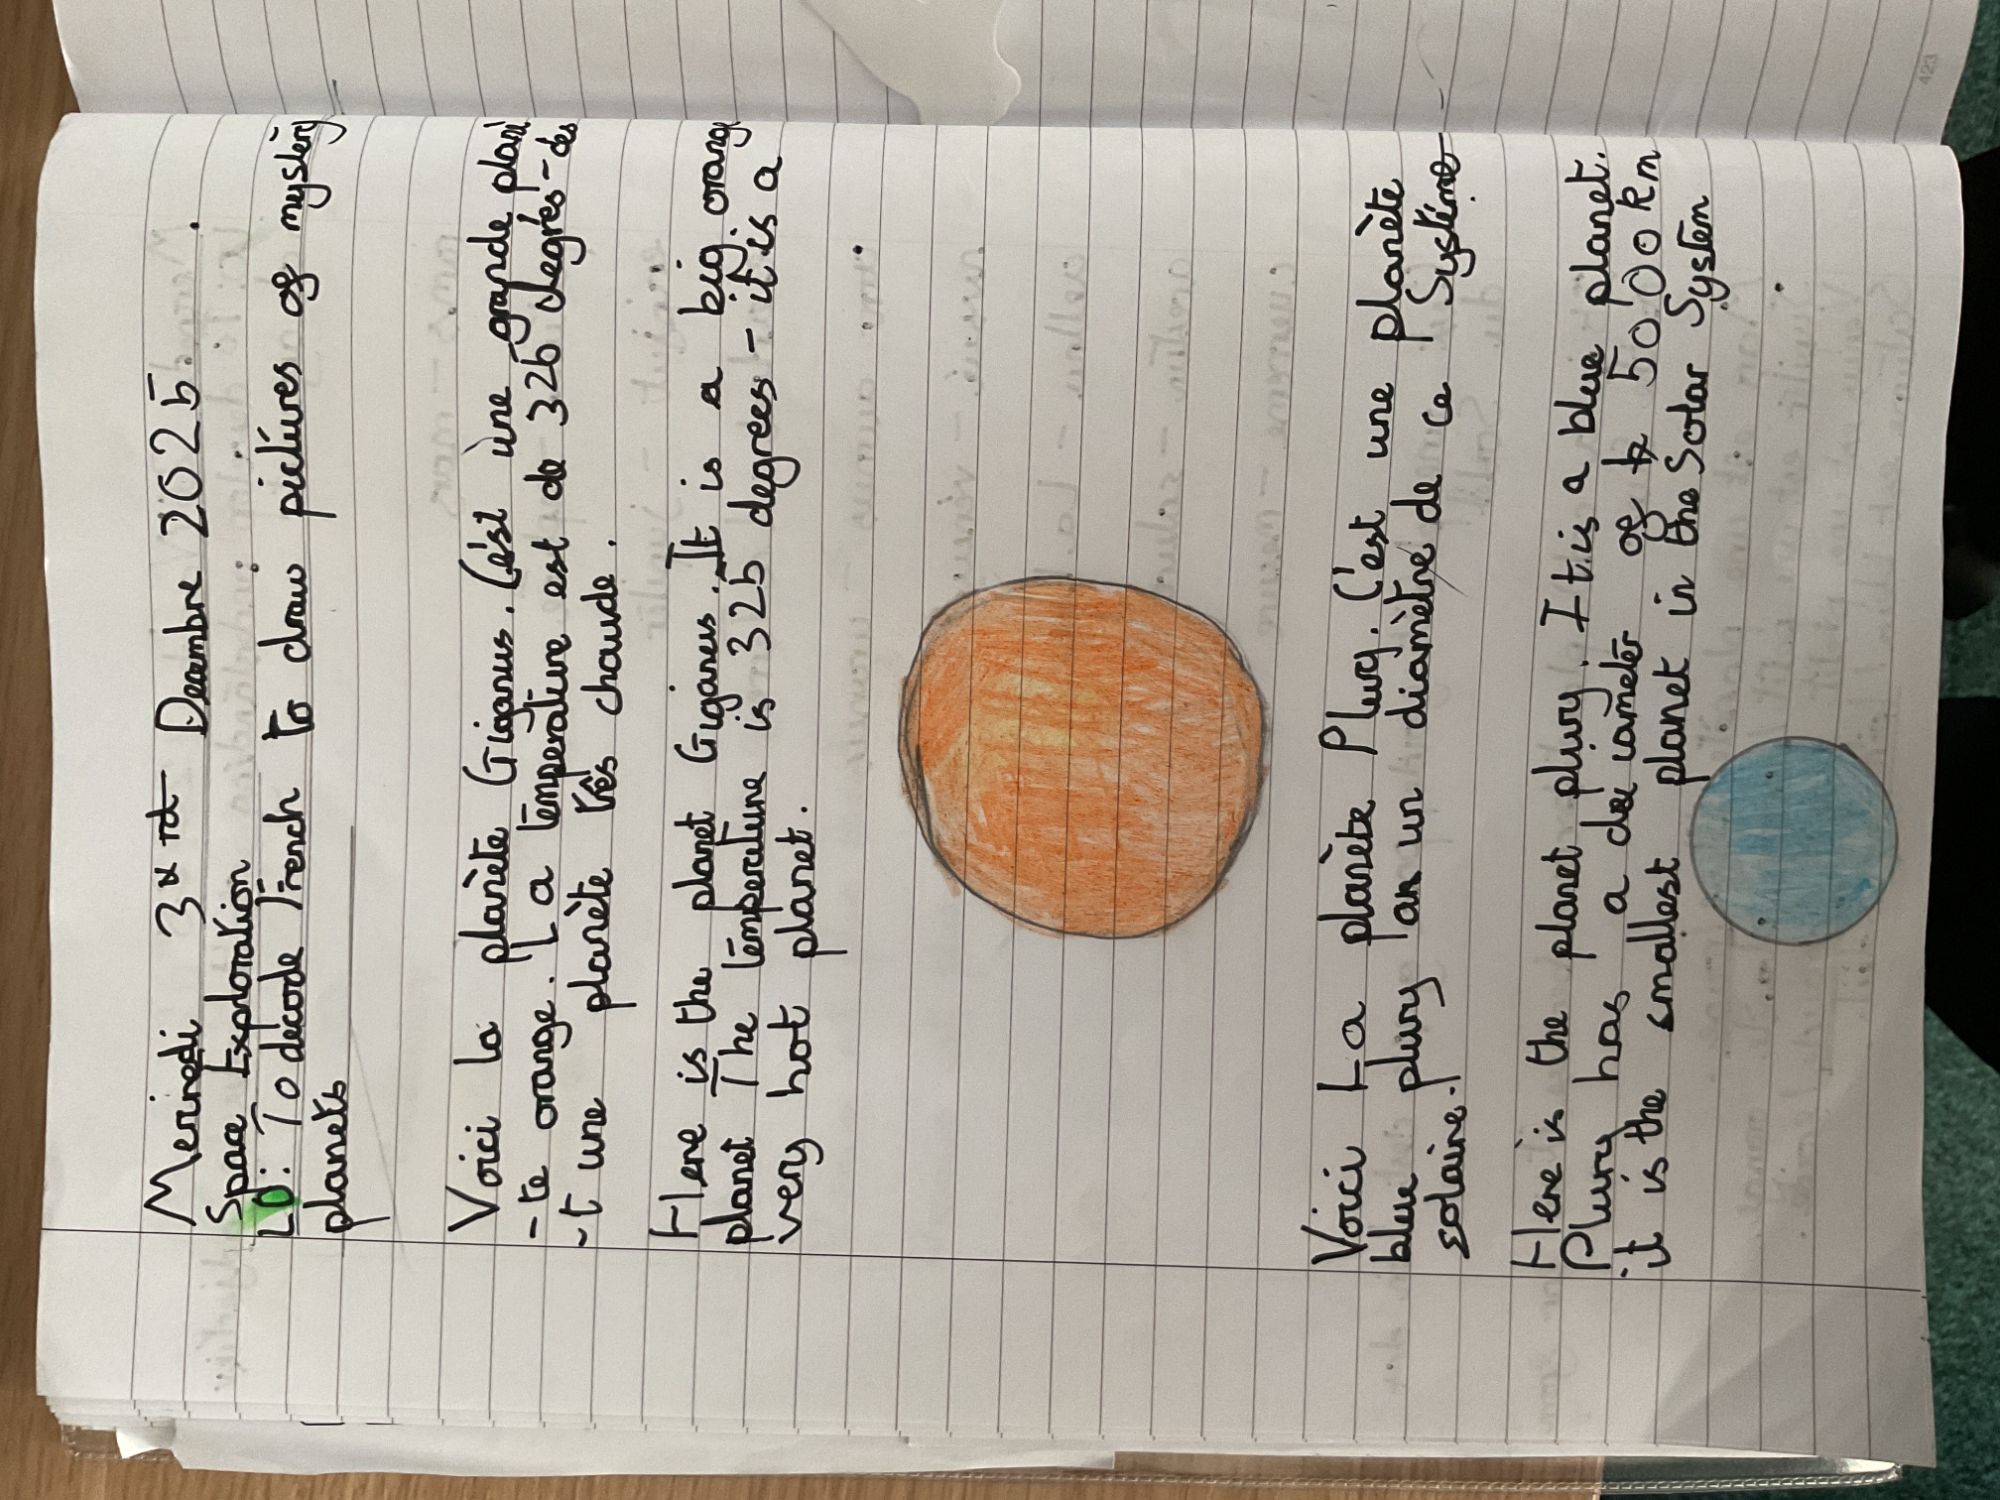 Merirdi 3x rd Decembre 2025.
Space Exploration
LO: To decode French to draw pictures of mystery
planets
Voici la planète Giganus. C'est une grande planè
-te orange. La température est de 326 degrés - c'es
-t une planète très chaude.
Here is the planet Giganus. It is a big orange
planet The temperature is 325 degrees - it is a
very hot planet.
Voici La planète Plury. C'est une planète
bleue plury an un diamètre de ce Système
solaire.
Here is the planet plury. It is a blue planet.
Plury has a diameter of 5000 km
it is the smallest planet in the Solar System
423